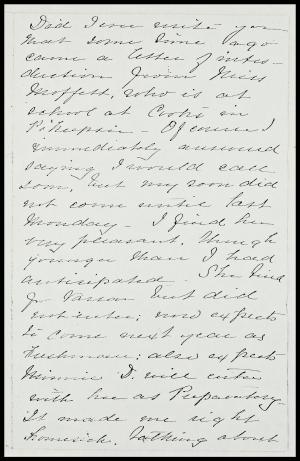 Did I ever write you
that some time ago
came a letter of intro-
duction from Miss
Moffett, who is at
school at Cook's in
P'keepsie - Of course I
immediately answered
saying I would call
soon, but my soon did
not come until last
Monday - I find her
very pleasant, though
younger than I had
anticipated. She tried
for Vassar but did
not enter; now expects
to come next year as
Freshman; also expects
Minnie D. will enter
with her as Preparatory -
It made me right
homesick, talking about